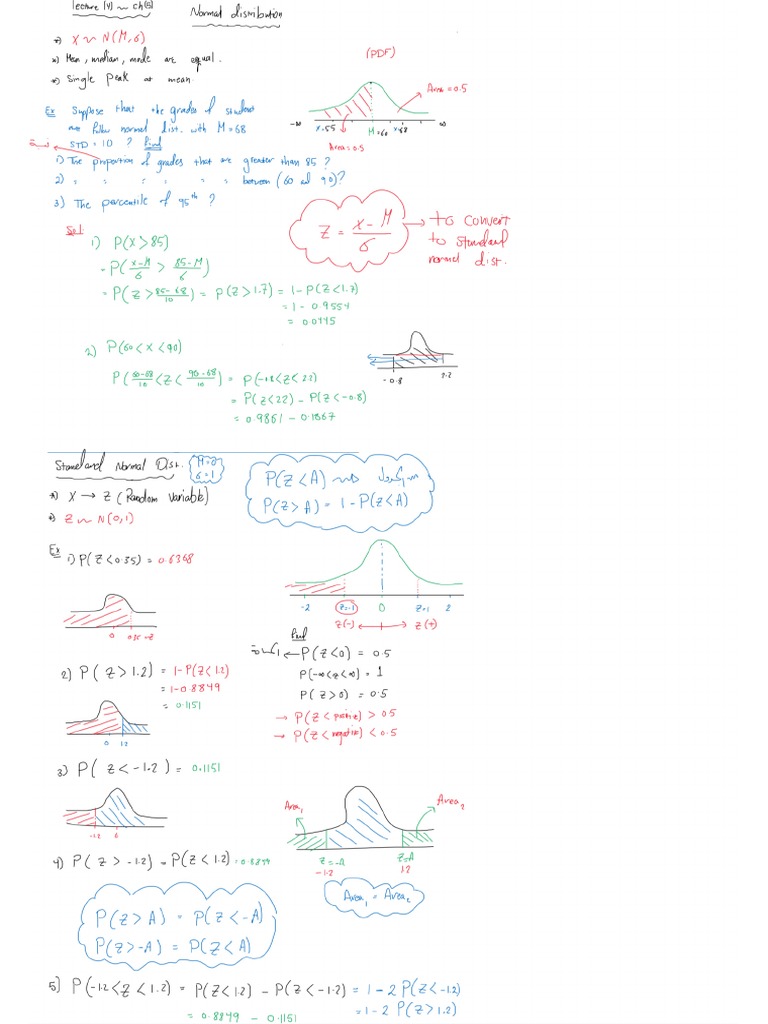 lecture (4) ~ ch(5)
Normal distribution
*) X ~ N(M, σ)
*) Mean, median, mode are equal.
*) Single Peak at mean.
(PDF)
Area = 0.5
-∞
∞
Area = 0.5
Ex Suppose that the grades of student
are follow normal dist. with M = 68
STD = 10 ? Find
1) The proportion of grades that are greater than 85 ?
2) " " " " " between (60 and 90)?
3) The percentile of 95th ?
Z = X-M / σ
to convert
to standard
normal dist.
Sol
1) P(X > 85)
= P( X-M / σ > 85-M / σ )
= P( Z > 85-68 / 10 ) = P(Z > 1.7) = 1 - P(Z < 1.7)
= 1 - 0.9554
= 0.0445
2) P(60 < X < 90)
P( 60-68 / 10 < Z < 90-68 / 10 ) = P(-0.8 < Z < 2.2)
= P(Z < 2.2) - P(Z < -0.8)
= 0.9861 - 0.1867
-0.8
2.2
Standard Normal Dist.
σ = 1
P(Z < A)
P(Z > A) = 1 - P(Z < A)
*) X → Z (Random Variable)
*) Z ~ N(0, 1)
Ex
1) P(Z < 0.35) = 0.6368
0
-2
Z=-1
0
Z=1
2
Z(-)
Z(+)
Find
P(Z < 0) = 0.5
P(-∞ < Z < ∞) = 1
P(Z > 0) = 0.5
→ P(Z < positive) > 0.5
→ P(Z < negative) < 0.5
2) P(Z > 1.2) = 1 - P(Z < 1.2)
= 1 - 0.8849
= 0.1151
0
1.2
3) P(Z < -1.2) = 0.1151
-1.2
Area₁
Area₂
Z=-A
-1.2
Z=A
1.2
Area₁ = Area₂
4) P(Z > -1.2) = P(Z < 1.2) = 0.8849
P(Z > A) = P(Z < -A)
P(Z > -A) = P(Z < A)
5) P(-1.2 < Z < 1.2) = P(Z < 1.2) - P(Z < -1.2) = 1 - 2 P(Z < -1.2)
= 1 - 2 P(Z > 1.2)
= 0.8849 - 0.1151